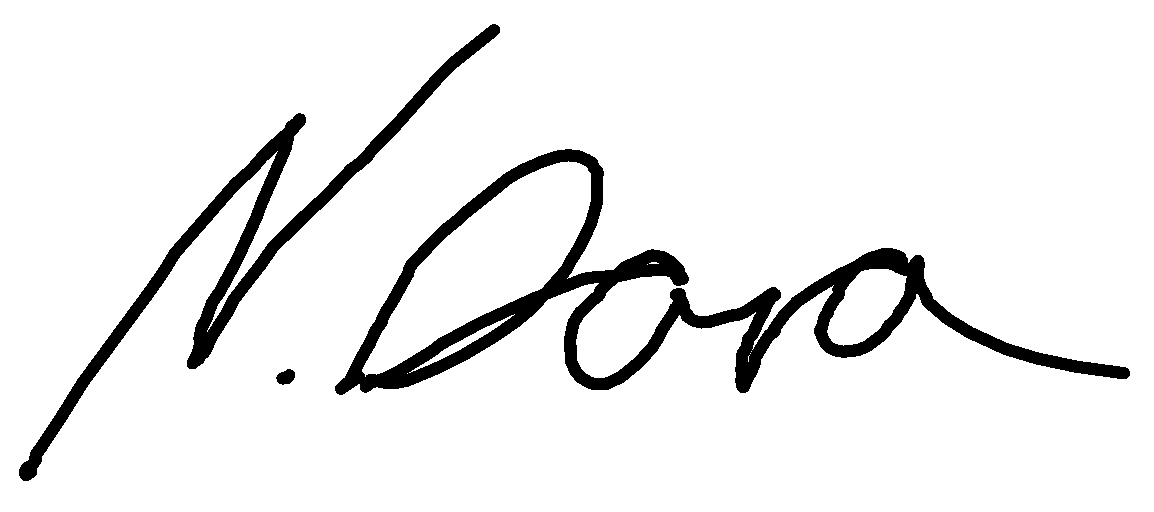 N. Dora